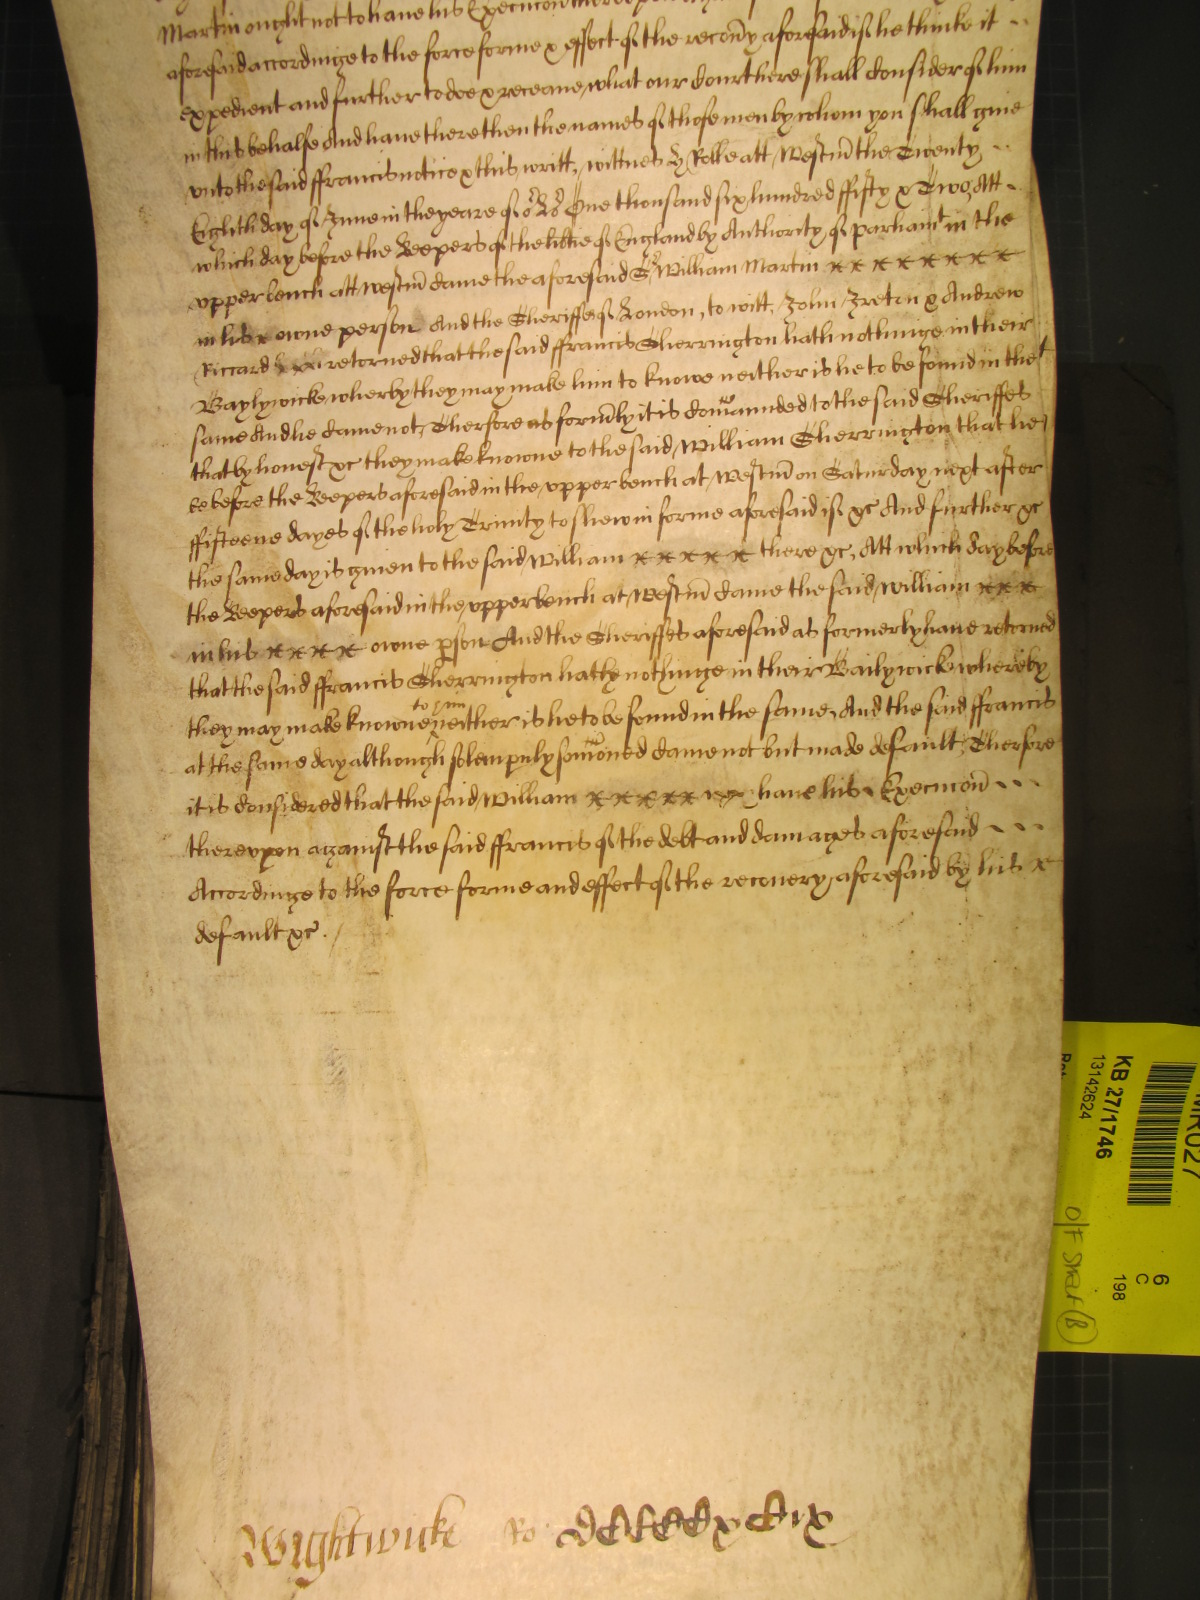 Martin ought not to have his Execucon thereupon
aforesaid accordinge to the force forme & effect of the recovy aforesaid if he thinke it
expedient and further to doe & receave what our Court here shall consider of him
in this behalfe And have there then the names of those men by whom you shall give
unto the said ffrancis notice & this writt, wittnes H Rolle att Westmr the Twenty
Eighth day of June in the yeare of or Lord One thousand six hundred ffifty & Two, Att
which day before the Keepers of the libtie of England by Authority of parliamt in the
upper bench att westmr came the aforesaid Sr William Martin
in his owne person And the Sheriffes of London, to witt, John Ireton & Andrew
Riccard retorned that the said ffrancis Cherrington hath nothinge in their
Baylywicke wherby they may make him to knowe neither is he to be found in the
same And he came not, Therfore as formly it is comaunded to the said Sheriffes
that by honest &c they make knowne to the said William Cherrington that he
be before the Keepers aforesaid in the upper bench at Westmr on Saturday next after
ffifteene dayes of the holy Trinity to shew in forme aforesaid if &c And further &c
the same day is given to the said William there &c, Att which day before
the Keepers aforesaid in the upper bench at Westmr came the said William
in his owne pson And the Sheriffes aforesaid as formerly have retorned
that the said ffrancis Cherrington hath nothinge in their Bailywick whereby
they may make knowne to him neither is he to be found in the same, And the said ffrancis
at the same day although solempnly somoned came not but made default, Therfore
it is considered that the said William have his Execucon
thereupon against the said ffrancis of the debt and damages aforesaid
Accordinge to the force forme and effect of the recovery aforesaid by his
default &c.
Wightwicke Ro
KB 27/1746
13142624
6
C
198
O/F